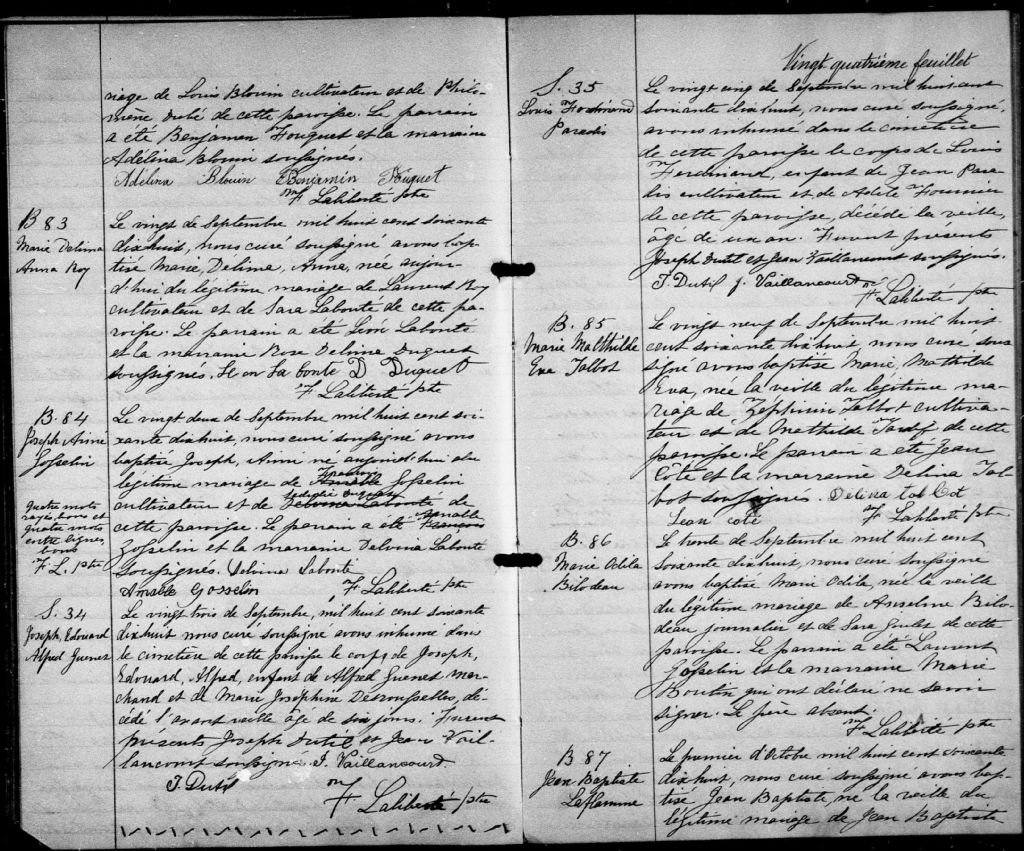 riage de Louis Blouin cultivateur et de Philo-
mène Dubé de cette paroisse. Le parrain
a été Benjamin Fouquet et la marraine
Adélina Blouin soussignés.
Adélina Blouin Benjamin Fouquet
F Laliberté ptre
B 83
Marie Delima
Anna Roy
Le vingt de Septembre mil huit cent soixante
dixhuit, nous curé soussigné avons bap-
tisé Marie, Délima, Anna, née aujour-
d'hui du légitime mariage de Laurent Roy
cultivateur et de Sara Labonté de cette pa-
roisse. Le parrain a été Léon Labonté
et la marraine Rose Delvina Duguet
soussignés. Le on La bonté D Duguet
F Laliberté ptre
B. 84
Joseph Aimé
Gosselin
Quatre mots
rayés, bons et
quatre mots
entre lignes
bons
F. L. ptre
Le vingt deux de Septembre mil huit cent soi-
xante dixhuit, nous curé soussigné avons
baptisé Joseph, Aimé né aujourd'hui du
légitime mariage de François Gosselin
cultivateur et de Delvina Labonté de
cette paroisse. Le parrain a été Amable François
Gosselin et la marraine Delvina Labonté
soussignés. Delvina Labonté
Amable Gosselin F Laliberté ptre
S. 34
Joseph, Edouard
Alfred Guenet
Le vingt trois de Septembre, mil huit cent soixante
dixhuit nous curé soussigné avons inhumé dans
le cimetière de cette paroisse le corps de Joseph,
Edouard, Alfred, enfant de Alfred Guenet mar-
chand et de Marie Josephine Desrousselles, dé-
cédé l'avant veille âgé de six jours. Furent
présents Joseph Dutil et Jean Vail-
lancourt soussignés. J. Vaillancourd
J. Dutil
F Laliberté ptre
Vingt quatrième feuillet
S. 35
Louis Ferdinand
Paradis
Le vingt cinq de Septembre mil huit cent
soixante dix huit, nous curé soussigné,
avons inhumé dans le cimetière
de cette paroisse le corps de Louis
Ferdinand, enfant de Jean Para-
dis cultivateur et de Adèle Fournier
de cette paroisse, décédé la veille,
âgé de un an. Furent présents
Joseph Dutil et Jean Vaillancourt soussignés.
J. Dutil J. Vaillancourd
F Laliberté ptre
B. 85
Marie Malthilde
Eva Talbot
Le vingt neuf de Septembre mil huit
cent soixante dixhuit, nous curé sous-
signé avons baptisé Marie, Mathilde
Eva, née la veille du légitime ma-
riage de Zéphirin Talbot cultiva-
teur et de Mathilde Tardif de cette
paroisse. Le parrain a été Jean
Côté et la marraine Delina Tal-
bot soussignés. Delina talbot
Jean coté F Laliberté ptre
B. 86
Marie Odila
Bilodeau
Le trente de Septembre mil huit cent
soixante dixhuit, nous curé soussigné
avons baptisé Marie Odila née la veille
du légitime mariage de Anselme Bilo-
deau journalier et de Sara Goulet de cette
paroisse. Le parrain a été Laurent
Gosselin et la marraine Marie
Boutin qui ont déclaré ne savoir
signer. Le père absent.
F Laliberté ptre
B 87
Jean Baptiste
Laflamme
Le premier d'Octobre mil huit cent soixante
dixhuit, nous curé soussigné avons bap-
tisé Jean Baptiste, né la veille du
légitime mariage de Jean Baptiste